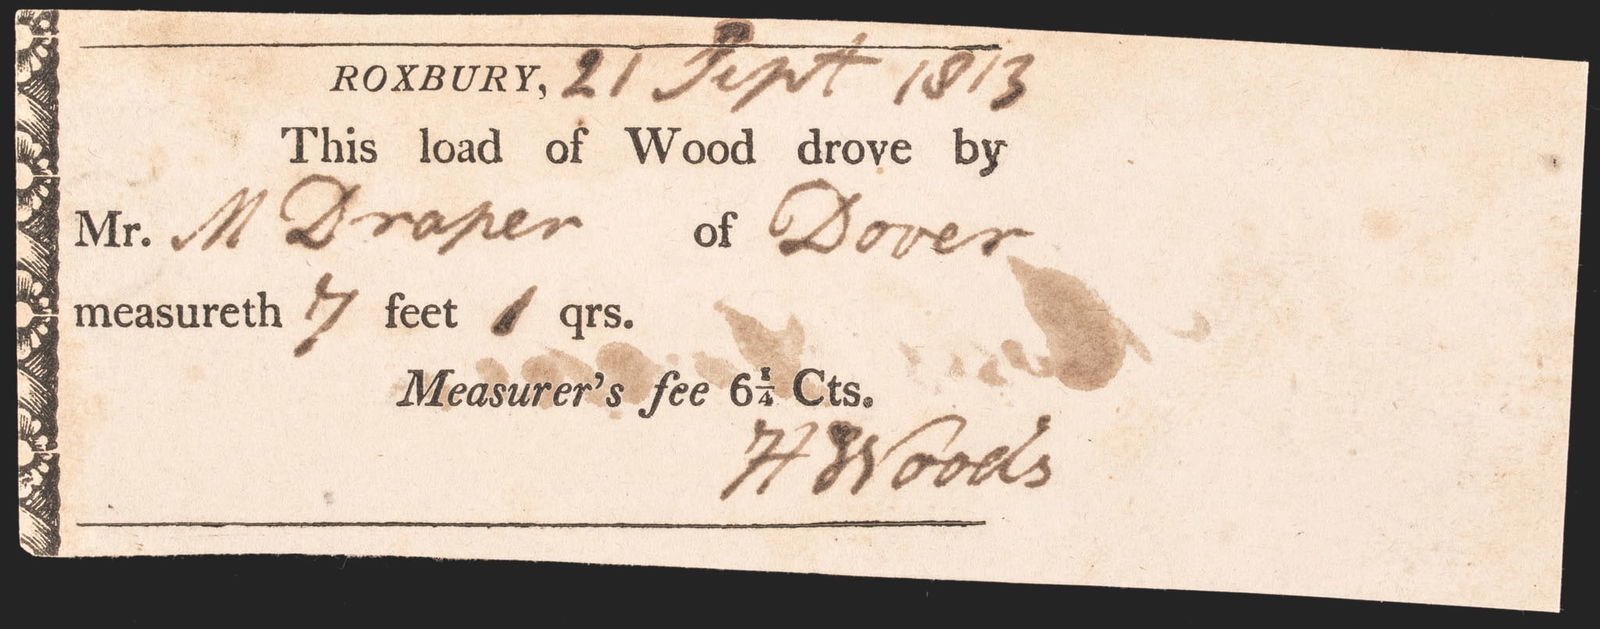 ROXBURY, 21 Sept 1813
This load of Wood drove by
Mr. M Draper of Dover
measureth 7 feet 1 qrs.
Measurer's fee 6¼ Cts.
H Woods